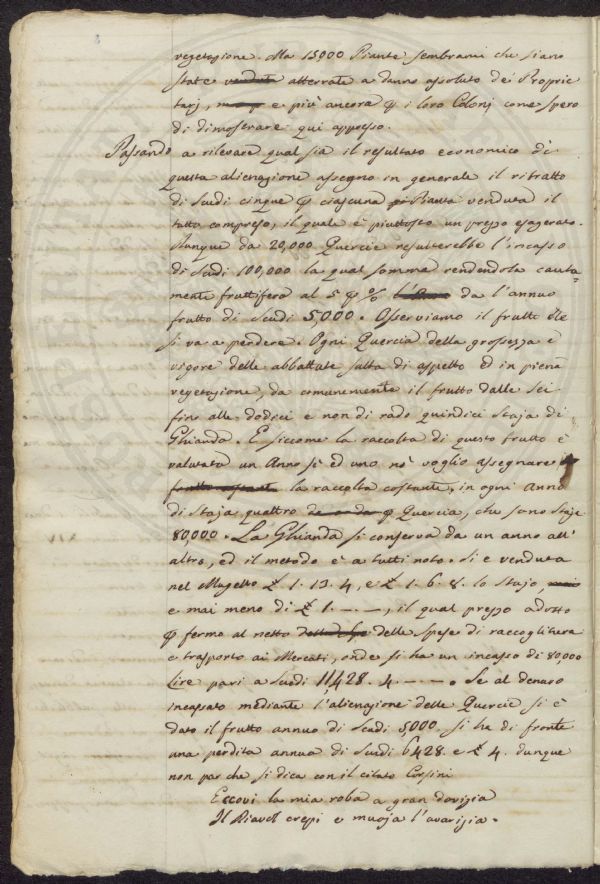 vegetazione. Ma 15000 Piante sembrami che siano
state vendute atterrate a danno assoluto de' Proprie
tarj, e più ancora φ i loro Colonj come spero
di dimostrare qui appresso.
Passando a rilevare qual sia il resultato economico di
questa alienazione assegno in generale il ritratto
di Scudi cinque φ ciascuna Pianta venduta il
tutto compreso, il quale è piuttosto un prezzo esagerato.
Dunque da 20,000 Quercie resulterebbe l'incasso
di Scudi 100,000 la qual somma rendendola cauta-
mente fruttifera al 5 φ % da l'annuo
frutto di Scudi 5,000. Osserviamo il frutto che
si va a perdere. Ogni Quercia della grossezza e
vigore delle abbattute salta di aspetto ed in piena
vegetazione, da comunemente il frutto dalle sei
fino alle dodici e non di rado quindici Staja di
Ghianda. E siccome la raccolta di questo frutto è
valutata un Anno sì ed uno nò voglio assegnare
la raccolta costante, in ogni anno
di Staja quattro φ Quercia, che sono Staje
80,000. La Ghianda si conserva da un anno all'
altro, ed il metodo è a tutti noto. Si è venduta
nel Mugello £ 1. 13. 4, e £ 1. 6. 8. lo Stajo,
e mai meno di £ 1. -. -, il qual prezzo adotto
φ fermo al netto delle spese di raccoglitura
e trasporto ai Mercati, onde si ha un incasso di 80,000
Lire pari a Scudi 11,428. 4 -. -. Se al denaro
incassato mediante l'alienazione delle Quercie si è
dato il frutto annuo di Scudi 5,000 si ha di fronte
una perdita annua di Scudi 6428 e £ 4. dunque
non par che si dica con il citato Corsini
Eccovi la mia roba a gran dovizia
Il Diavol crepi e muoja l'avarizia.